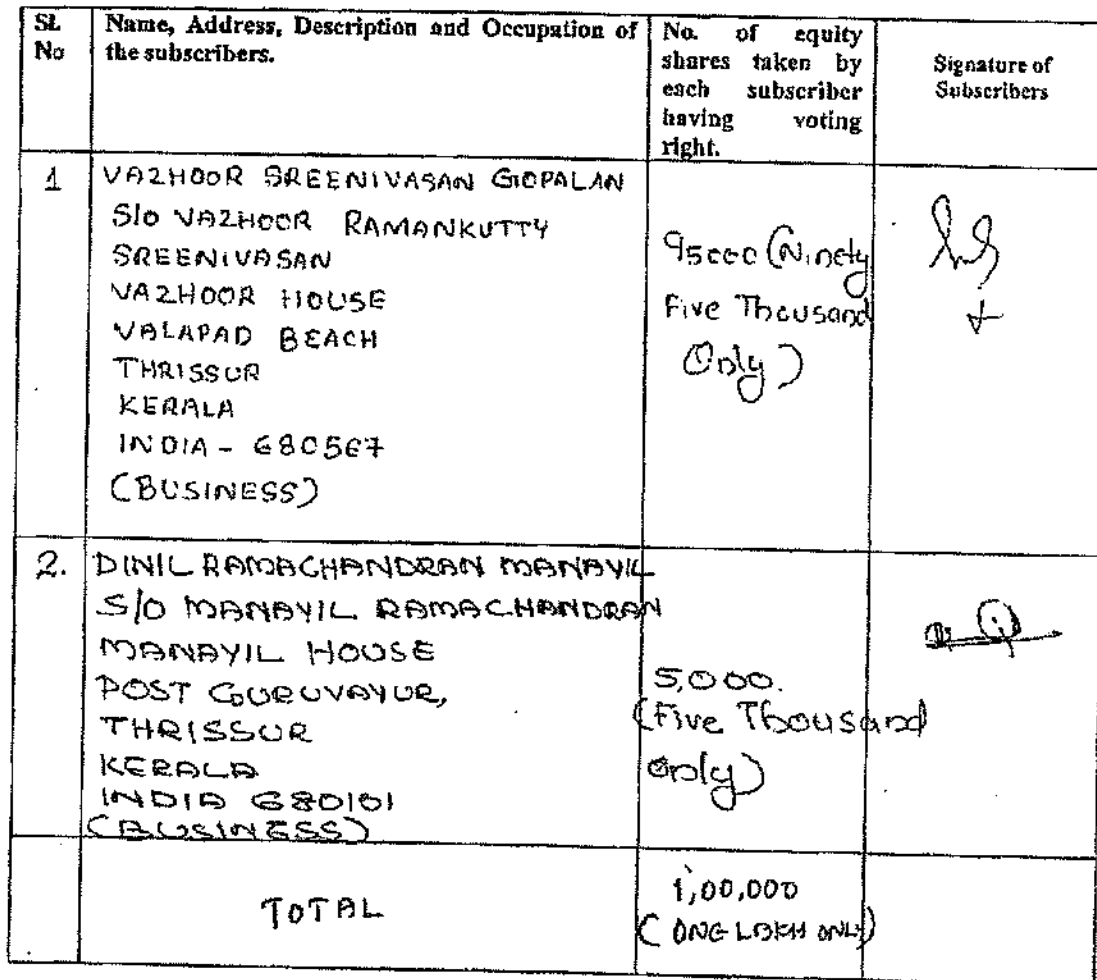 SL No
Name, Address, Description and Occupation of
the subscribers.
No. of equity
shares taken by
each subscriber
having voting
right.
Signature of
Subscribers
1
VAZHOOR SREENIVASAN GOPALAN
S/o VAZHOOR RAMANKUTTY
SREENIVASAN
VAZHOOR HOUSE
VALAPAD BEACH
THRISSUR
KERALA
INDIA - 680567
(BUSINESS)
95000 (Ninety
Five Thousand
Only)
2.
DINIL RAMACHANDRAN MANAYIL
S/O MANAYIL RAMACHANDRAN
MANAYIL HOUSE
POST GURUVAYUR,
THRISSUR
KERALA
INDIA 680101
(BUSINESS)
5,000.
(Five Thousand
only)
TOTAL
1,00,000
(ONE LAKH ONLY)